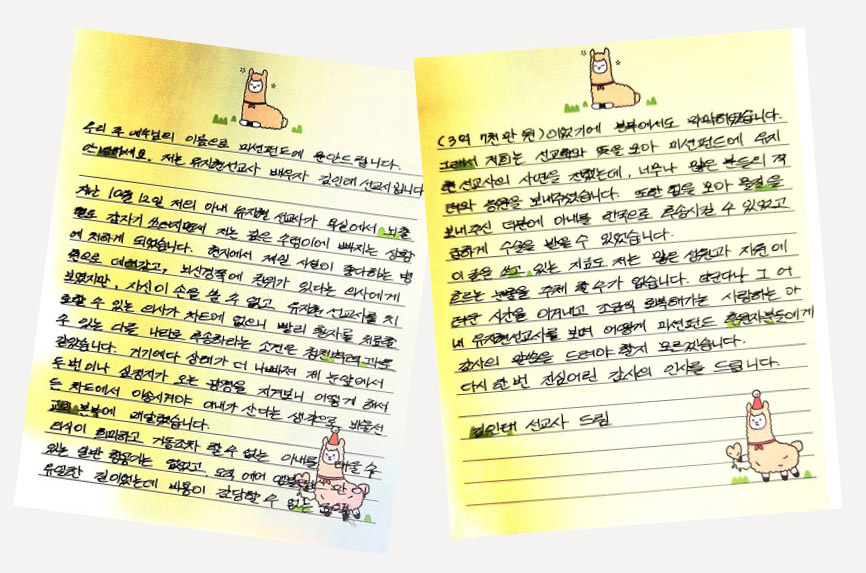 우리 주 예수님의 이름으로 미션펀드에 문안드립니다.
안녕하세요. 저는 유지현선교사 배우자 김인태 선교사입니다
지난 10월 12일 저의 아내 유지현 선교사가 욕실에서 뇌출
혈로 갑자기 쓰러지면서 저는 깊은 수렁이에 빠지는 상황
에 처하게 되었습니다. 현지에서 제일 시설이 좋다하는 병
원으로 데려갔고, 뇌신경쪽에 권위가 있다는 의사에게
보였지만, 자신이 손을 쓸 수 없고 유지현 선교사를 치
료할 수 있는 의사가 차드에 없으니 빨리 환자를 치료할
수 있는 다른 나라로 후송하라는 소견은
같았습니다. 거기에다 상태가 더 나빠져 제 눈앞에서
두 번이나 심정지가 오는 광경을 지켜보니 어떻게 해서
든 차드에서 이송시켜야 아내가 산다는 생각으로, 바울선
교회 본부에 매달렸습니다.
의식이 희미하고 거동조차 할 수 없는 아내를 태울 수
있는 일반 항공기는 없었고, 오직 에어 만이
유일한 길이었는데 비용이 감당할 수 없는
(3억 7천만 원)이었기에 본부에서도 막막하였습니다.
그래서 저희는 선교회와 뜻을 모아 미션펀드에 유지
현 선교사의 사연을 전했는데, 너무나 많은 분들의 격
려와 응원을 보내주었습니다. 또한 힘을 모아 물질을
보내주신 덕분에 아내를 한국으로 후송시킬 수 있었고
급하게 수술을 받을 수 있었습니다.
이 글을 쓰고 있는 지금도 저는 많은 성원과 지원에
흐르는 눈물을 주체 할 수가 없습니다. 더군다나 그 어
려운 시간을 이겨내고 조금씩 회복해가는 사랑하는 아
내 유지현선교사를 보며 어떻게 미션펀드 후원자분들에게
감사의 말씀을 드려야 할지 모르겠습니다.
다시 한 번 진심어린 감사의 인사를 드립니다.
김인태 선교사 드림